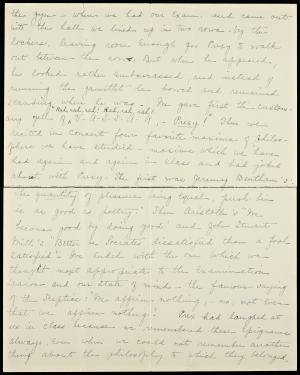 the gym - when we had our exam. and came out
into the hall we lined up in two rows - by the
lockers, leaving room enough for Prexy to walk
out between the rows. But when he appeared,
he looked rather embarrassed, and instead of
running the gauntlet he bowed and remained
standing where he was. We gave first the custom-
Rah, rah, rah! Rah, rah, rah!
ary yell of V-A-S-S-A-R, - Prexy! Then we
recited in concert four favorite maxims of philos-
ophers we have studied - maxims which we have
had again and again in class and had joked
about with Prexy. The first was Jeremy Bentham's:
"The quantity of pleasure being equal, push pin
is as good as poetry." Then Aristotle's "We
become good by doing good" and John Stuart
Mill's "Better a Socrates dissatisfied than a fool
satisfied". We ended with the one which we
thought most appropriate to the examination
season and our state of mind - the famous saying
of the Skeptics: "We affirm nothing, - no, not even
that we affirm nothing!" Prex had laughed at
us in class because we remembered these epigrams
always, even when we could not remember another
thing about the philosophy to which they belonged.